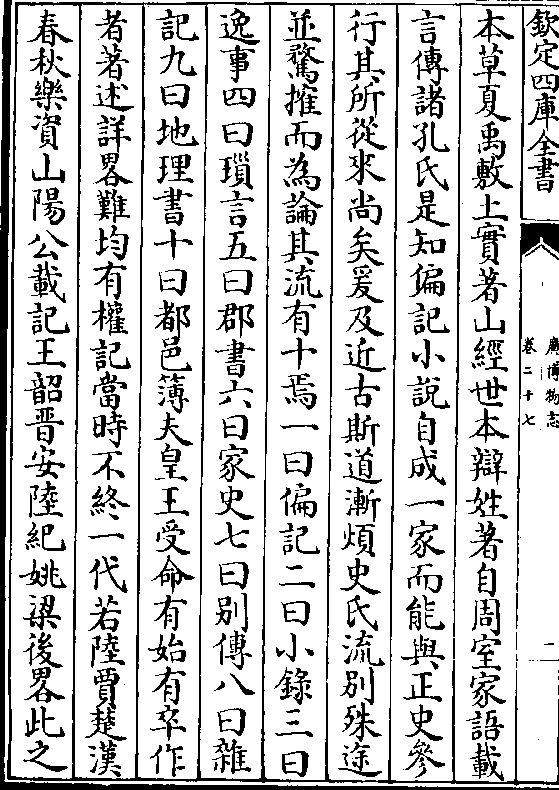 欽定四庫全書
廣博物志
卷二十七
二
本草夏禹敷土實著山經世本辯姓著自周室家語載
言傳諸孔氏是知偏記小說自成一家而能與正史參
行其所從來尚矣爰及近古斯道漸煩史氏流別殊途
並騖搉而為論其流有十焉一曰偏記二曰小錄三曰
逸事四曰瑣言五曰郡書六曰家史七曰別傳八曰雜
記九曰地理書十曰都邑簿夫皇王受命有始有卒作
者著述詳畧難均有權記當時不終一代若陸賈楚漢
春秋樂資山陽公載記王韶晋安陸紀姚梁後畧此之